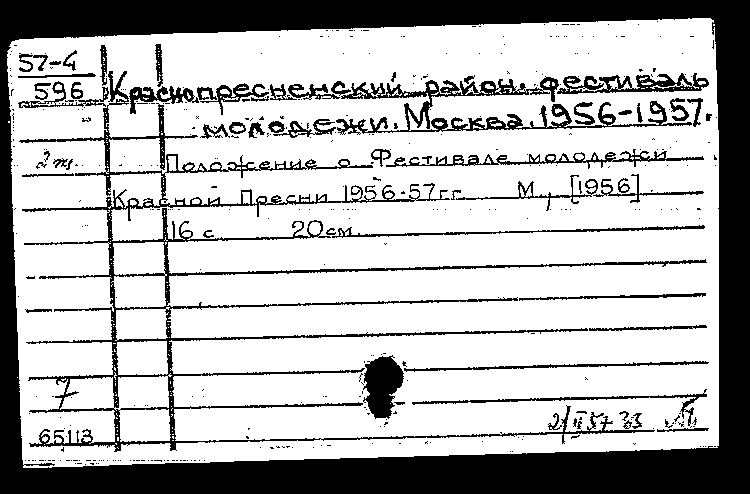 57-4
596
Краснопресненский район. фестиваль
молодежи. Москва. 1956-1957.
2 т.
Положение о Фестивале молодежи
Красной Пресни 1956-57гг. М., [1956]
16 с 20см.
7
65113
2/II 57 33